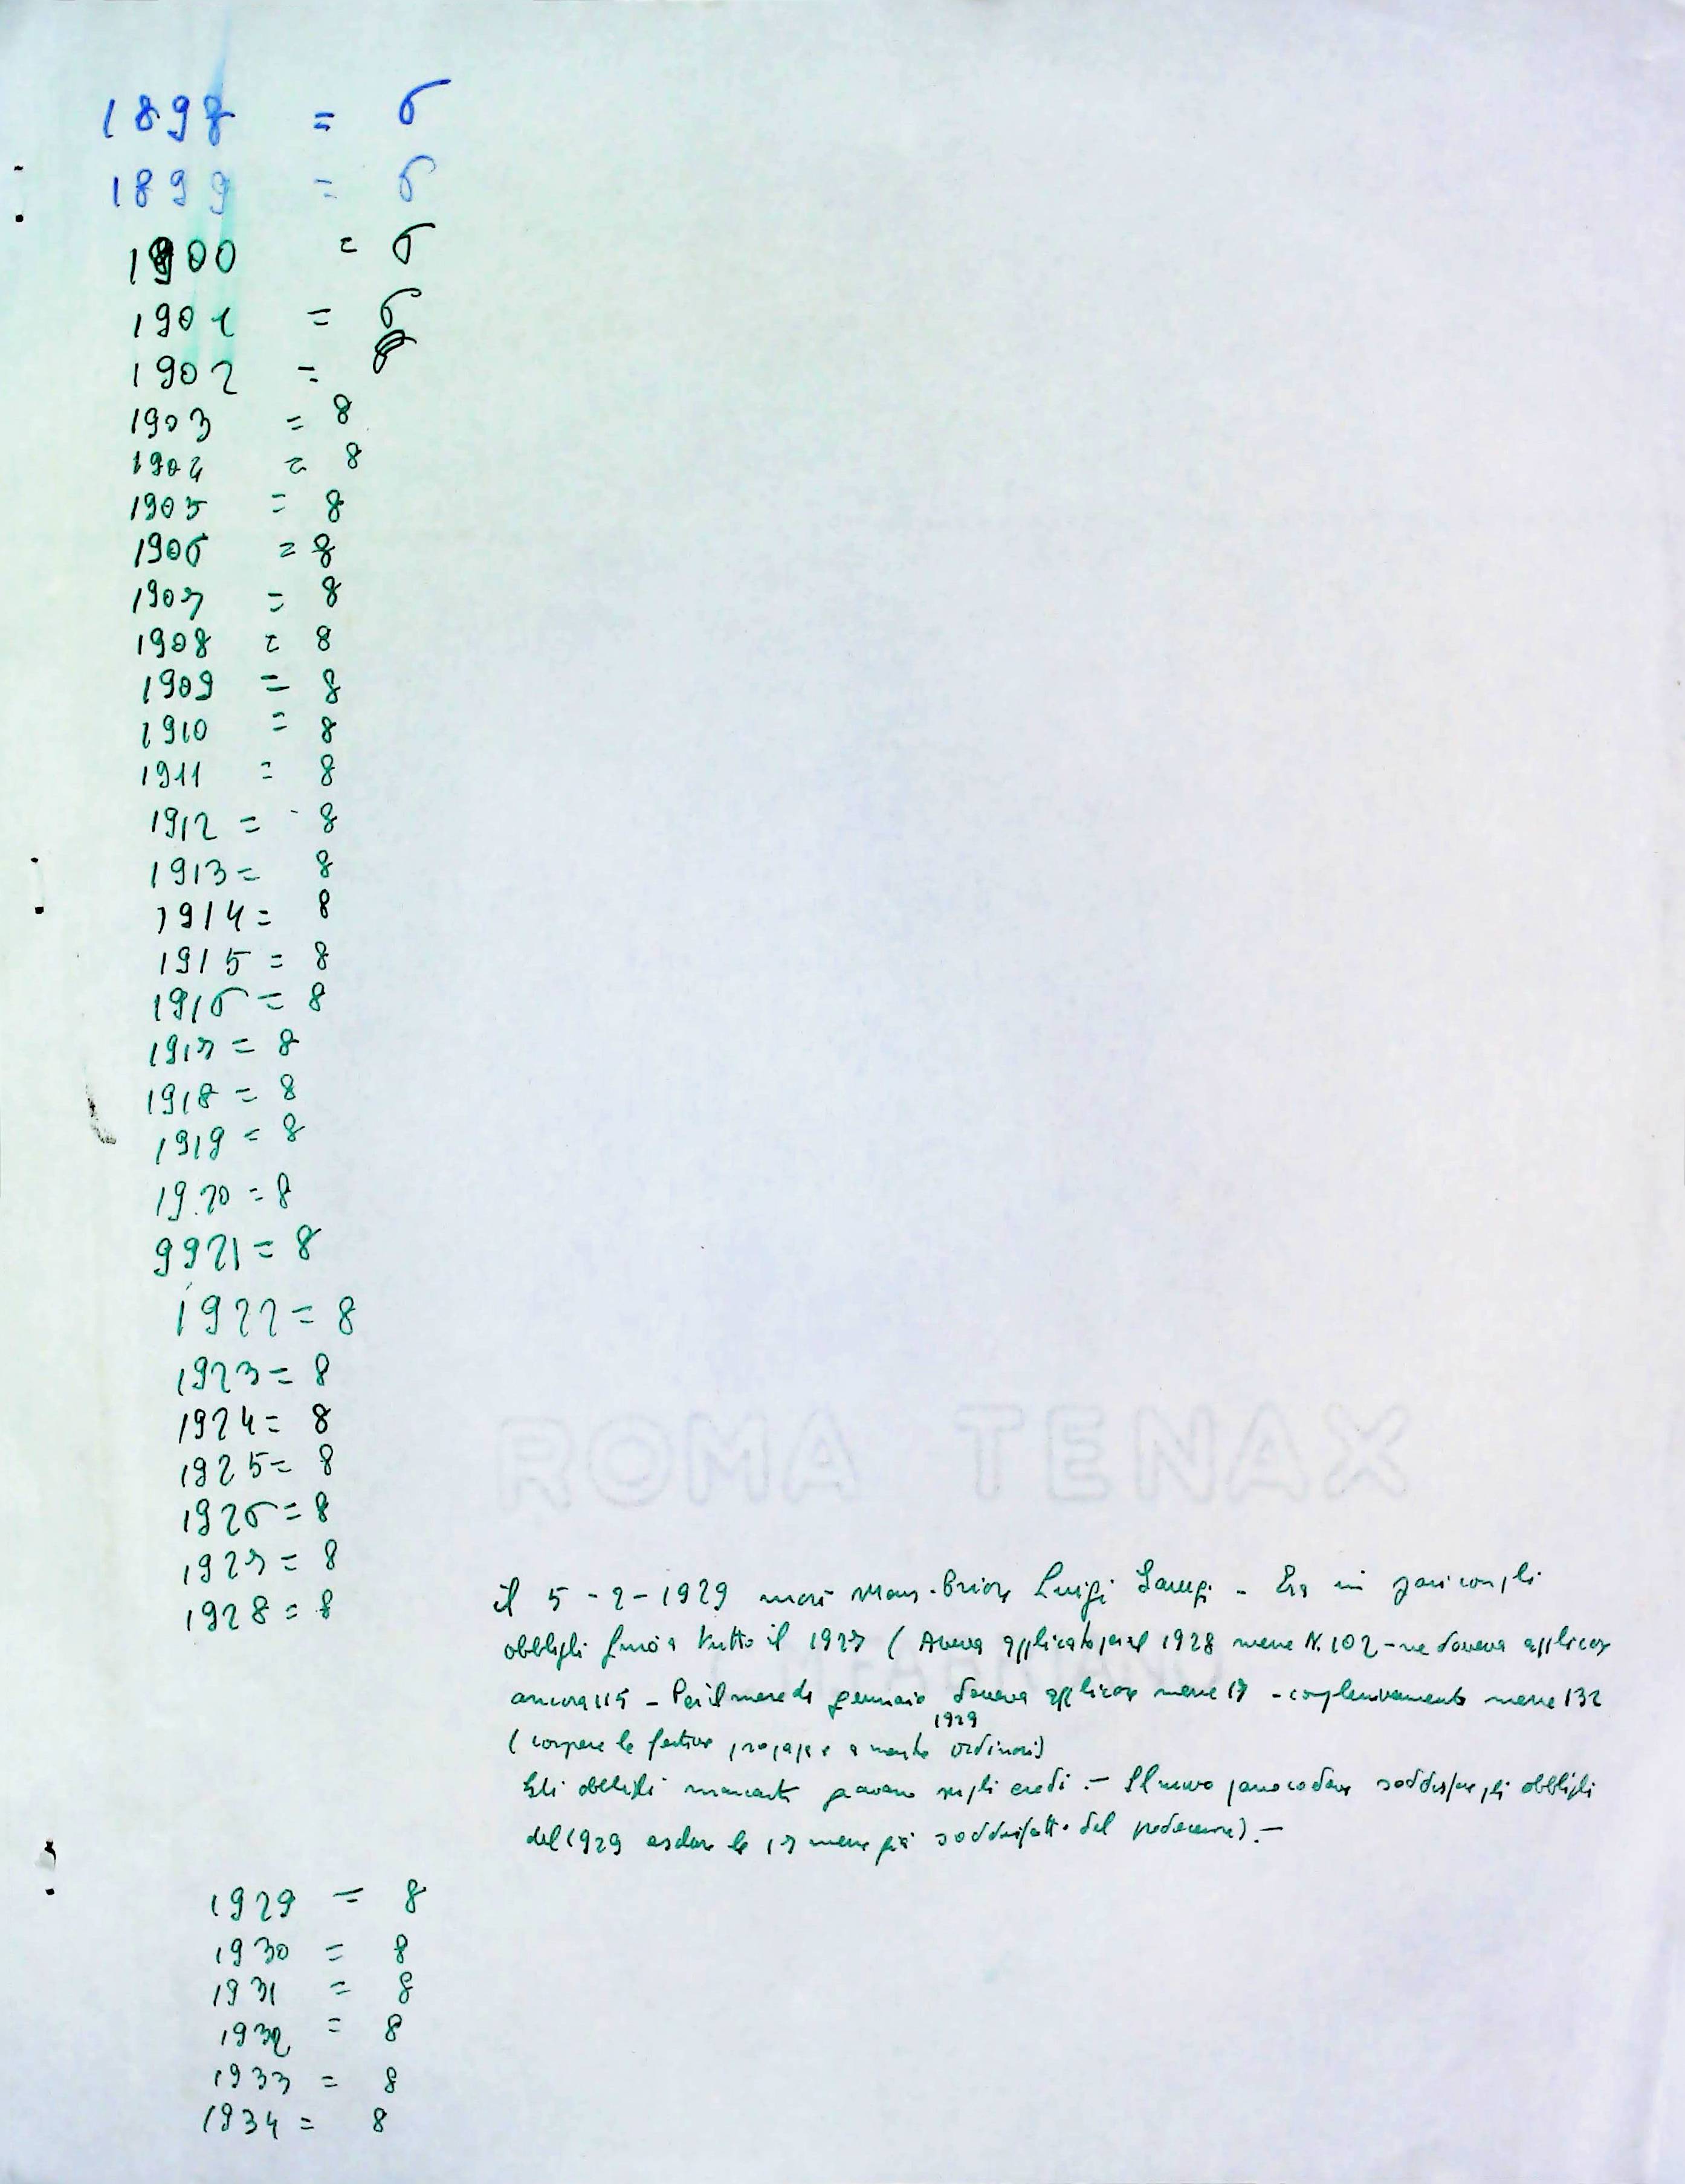 1898 = 6
1899 = 6
1900 = 6
1901 = 6
1902 = 8
1903 = 8
1904 = 8
1905 = 8
1906 = 8
1907 = 8
1908 = 8
1909 = 8
1910 = 8
1911 = 8
1912 = 8
1913 = 8
1914 = 8
1915 = 8
1916 = 8
1917 = 8
1918 = 8
1919 = 8
1920 = 8
9921 = 8
1922 = 8
1923 = 8
1924 = 8
1925 = 8
1926 = 8
1927 = 8
1928 = 8
ROMA TENAX
il 5-2-1929 morì Mons. Luigi - Era in pari con gli
obblighi fino a tutto il 1927 (Aveva applicato per il 1928 messe N. 102 - ne doveva applicare
ancora 115 - Per il mese di gennaio 1929 doveva applicare messe 17 - complessivamente messe 132
( le festive ordinari)
Gli obblighi mancanti sugli eredi. - Il nuovo parroco deve soddisfare gli obblighi
del 1929 le 17 messe già soddisfatte dal predecessore). -
1929 = 8
1930 = 8
1931 = 8
1932 = 8
1933 = 8
1934 = 8